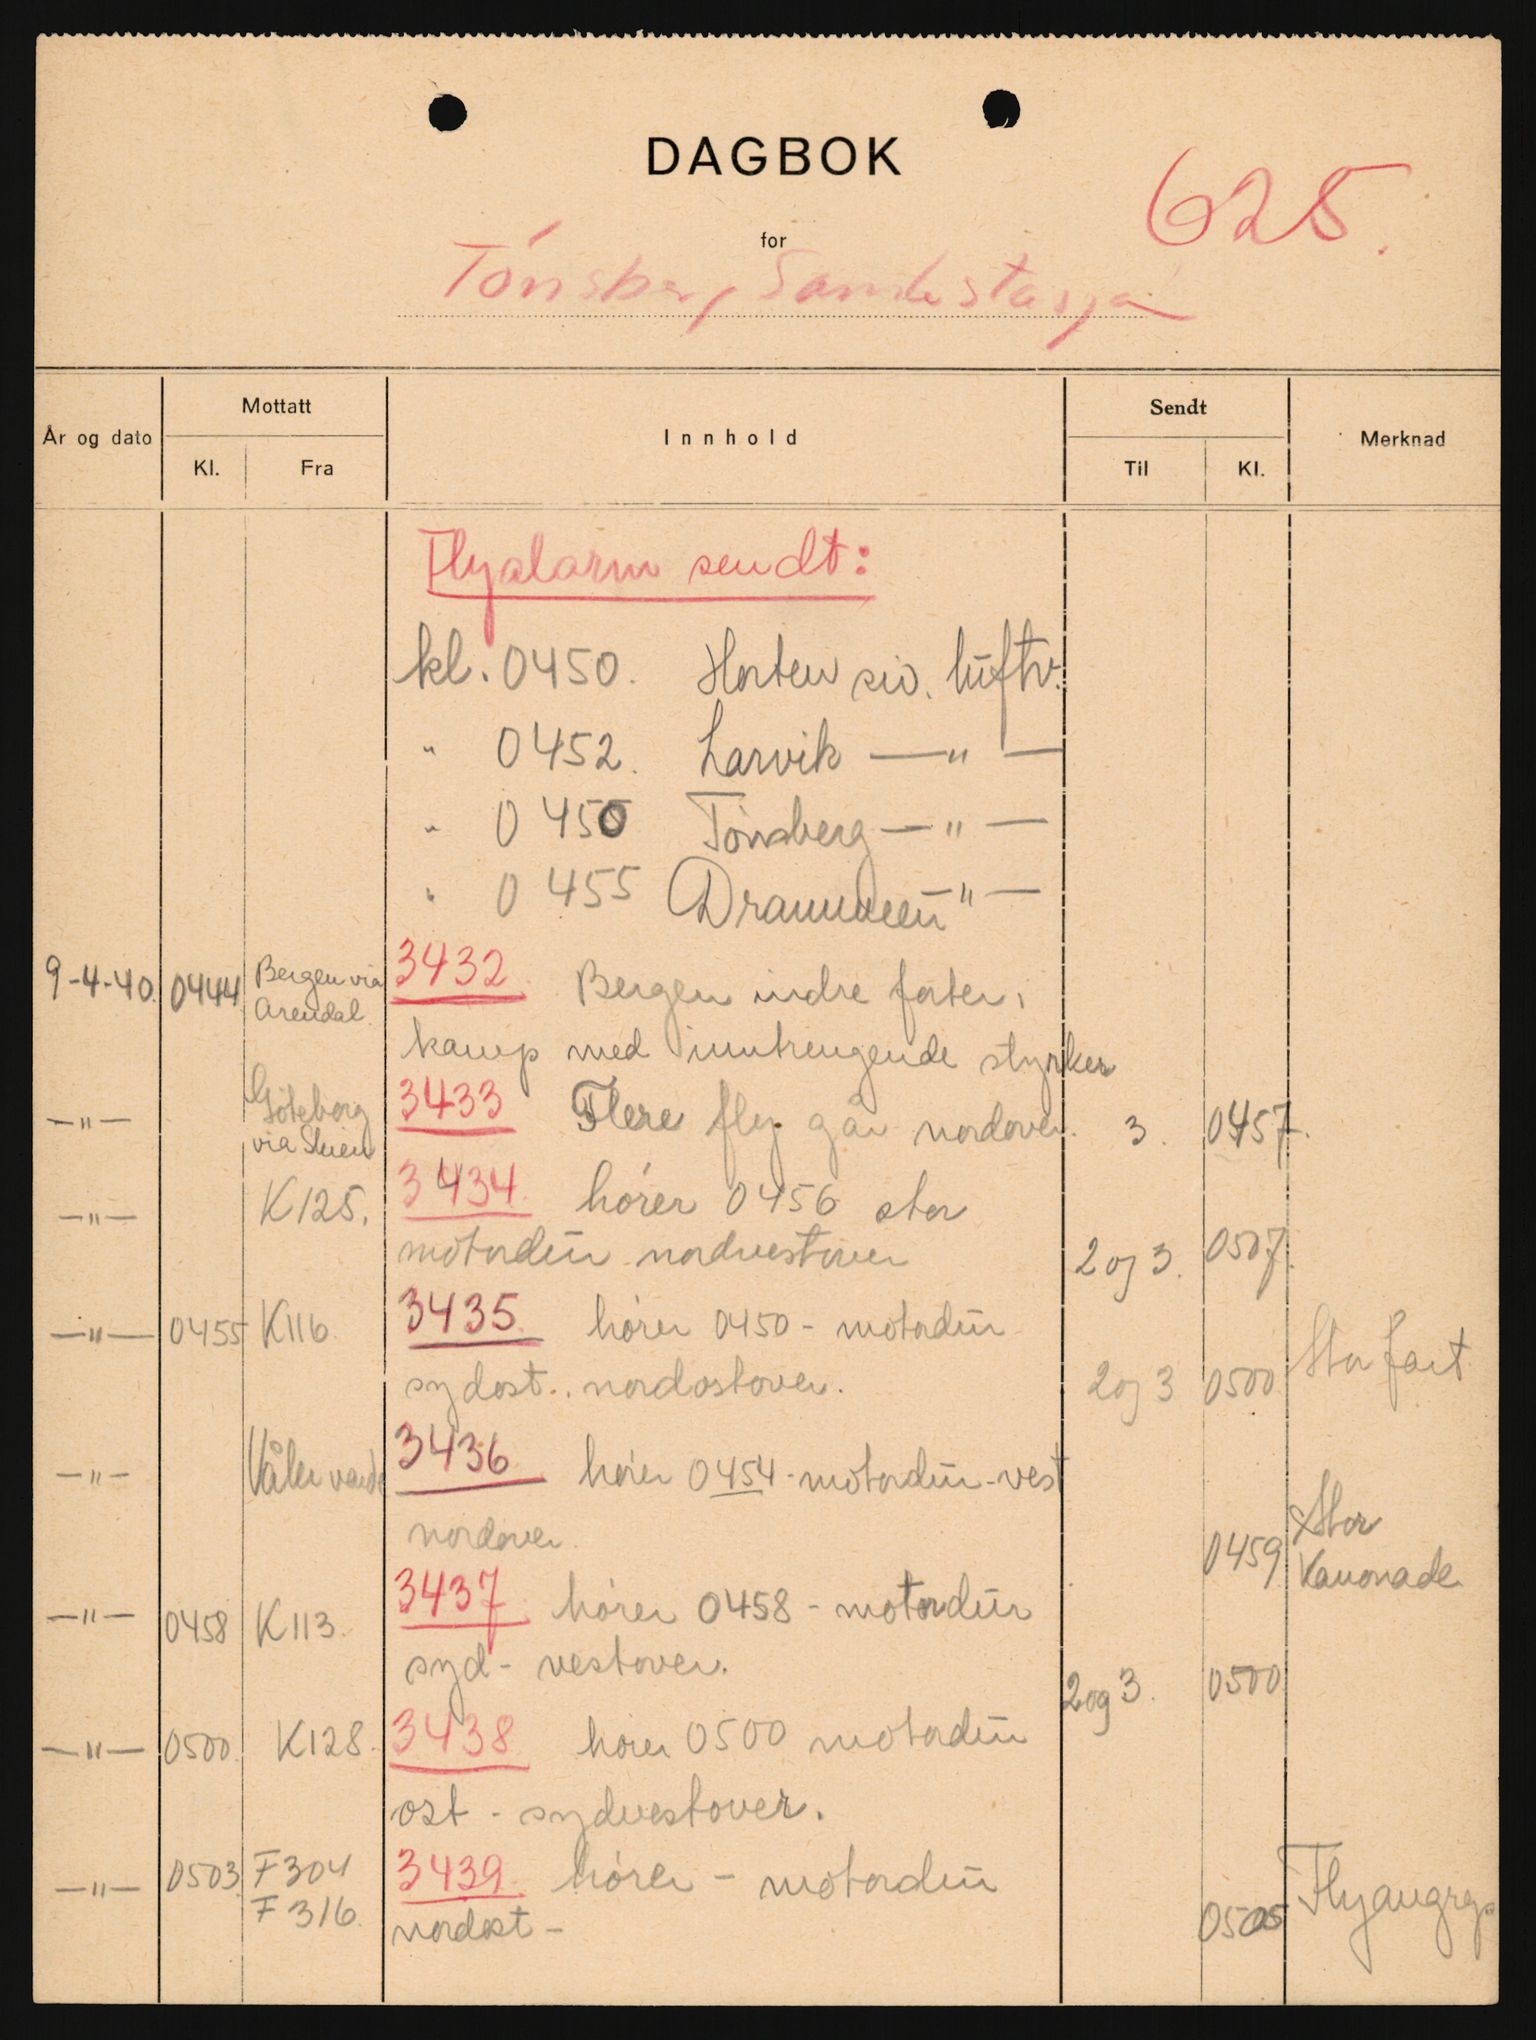 DAGBOK
625.
for
Tönsberg Samlestasjon
År og dato Mottatt Innhold Sendt Merknad
Kl. Fra Til Kl.
Flyalarm sendt:
kl. 0450. Horten siv. luftv.
" 0452. Larvik — " —
" 0450 Tönsberg — " —
" 0455 Drammen " —
9-4-40. 0444 Bergen via Arendal 3432 Bergen indre forter i
kamp med inntrengende styrker
— " — Göteborg via Skien 3433 Flere fly går nordover. 3. 0457.
— " — K125. 3434. hörer 0456 stor
motordur nordvestover 2 og 3. 0507.
— " — 0455 K116 3435. hörer 0450 - motordur Stor fart
sydost.. nordostover. 2 og 3 0500
— " — Våler varde 3436 hörer 0454 - motordur - vest
nordover. 0459 Stor Kanonade
— " — 0458 K113. 3437 hörer 0458 - motordur
syd - vestover. 2 og 3. 0500
— " — 0500. K128. 3438 hörer 0500 motordur
ost - sydvestover.
— " — 0503 F304 3439. hörer - motordur
F316. nordost - 0505 Flyangrep